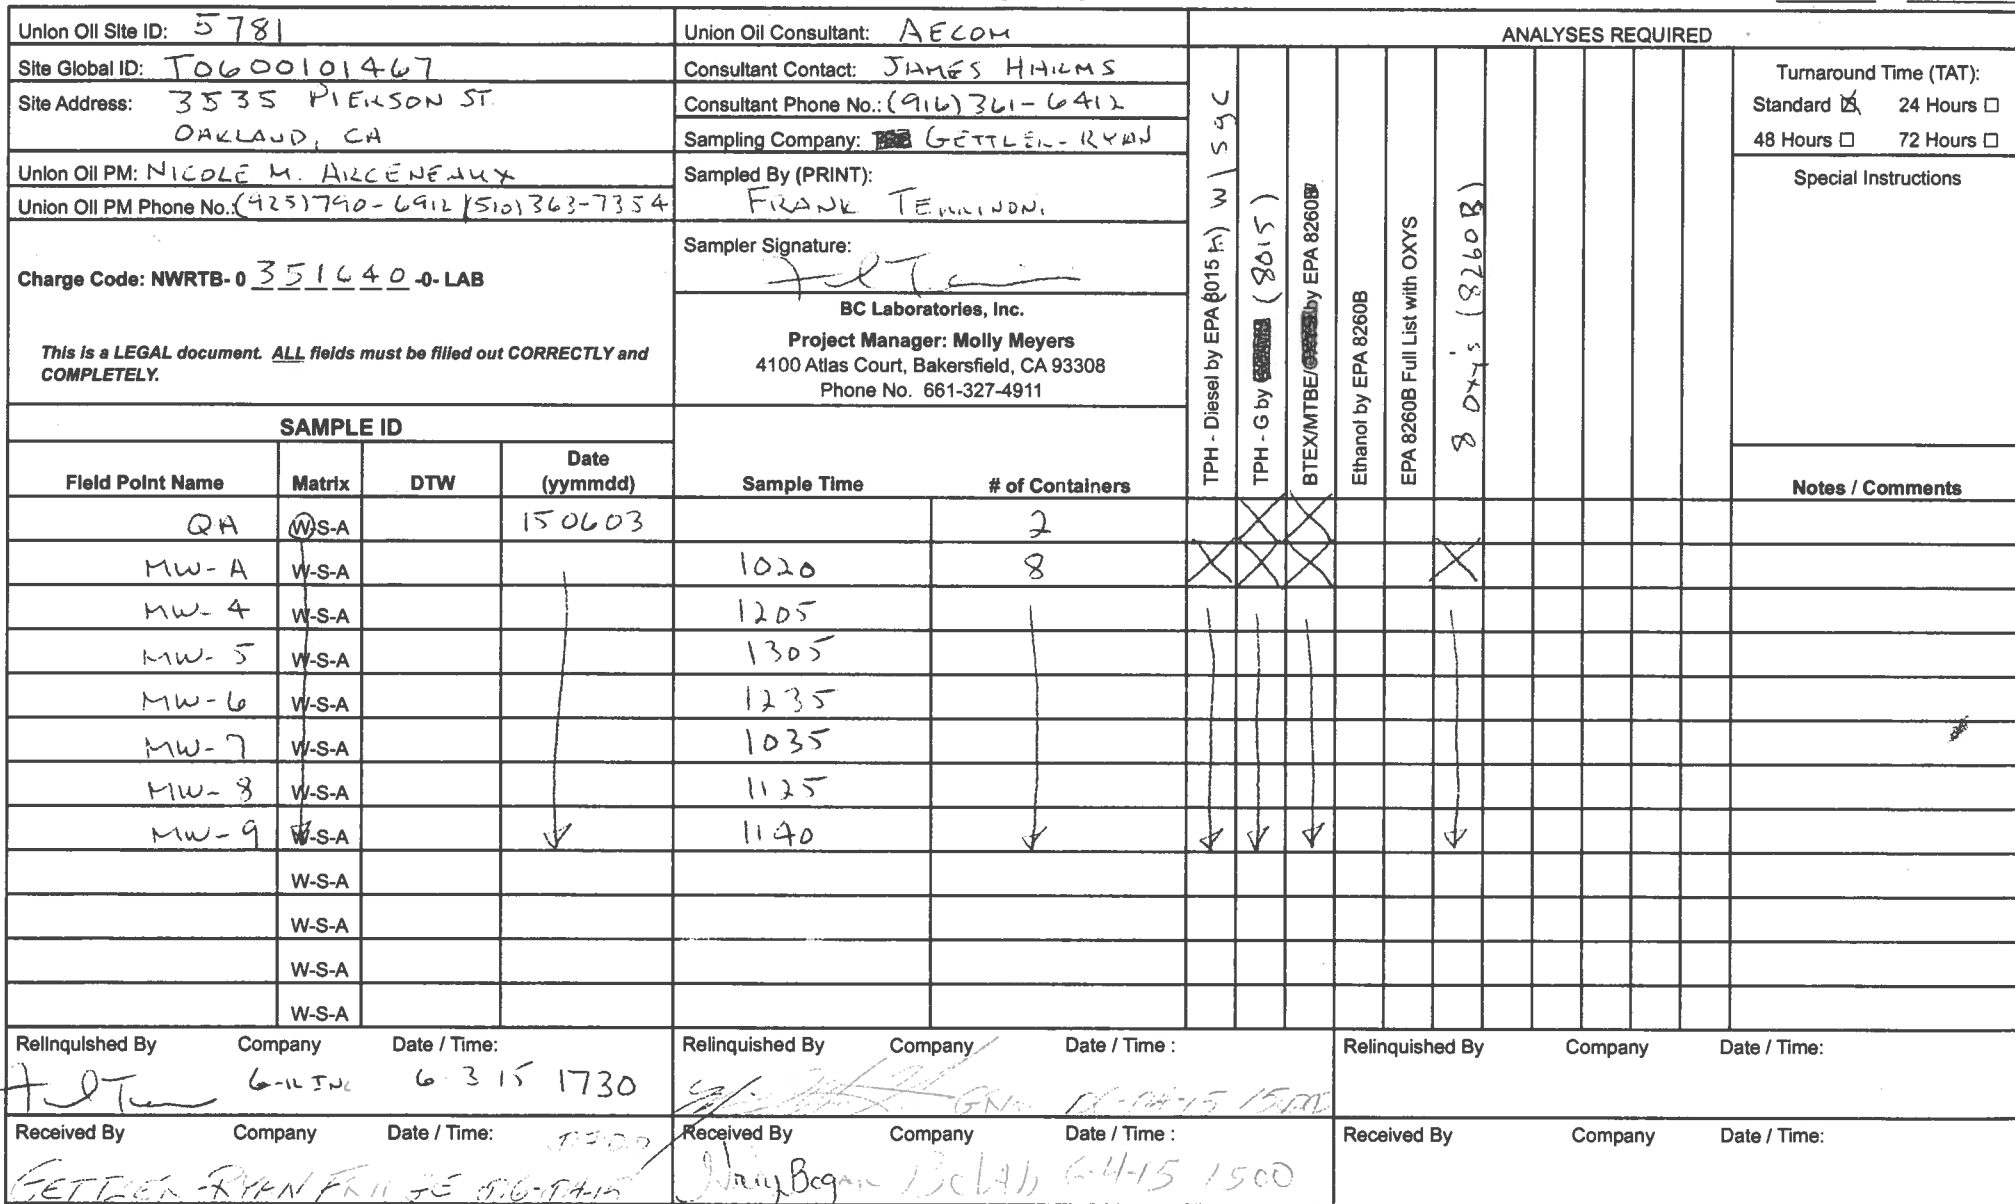 Union Oil Site ID: 5781
Site Global ID: T0600101467
Site Address: 3535 PIERSON ST.
OAKLAND, CA
Union Oil PM: NICOLE M. ARCENEAUX
Union Oil PM Phone No.: (925)790-6912 /(510)363-7354
Charge Code: NWRTB- 0 351640 -0- LAB
This is a LEGAL document. ALL fields must be filled out CORRECTLY and
COMPLETELY.
Union Oil Consultant: AECOM
Consultant Contact: JAMES HARMS
Consultant Phone No.: (916) 361-6412
Sampling Company: GETTLER-RYAN
Sampled By (PRINT):
FRANK TERRINONI
Sampler Signature:
BC Laboratories, Inc.
Project Manager: Molly Meyers
4100 Atlas Court, Bakersfield, CA 93308
Phone No. 661-327-4911
ANALYSES REQUIRED
TPH - Diesel by EPA 8015 w/ sgc
TPH - G by (8015)
BTEX/MTBE/ by EPA 8260B
Ethanol by EPA 8260B
EPA 8260B Full List with OXYS
8 Oxy's (8260B)
Turnaround Time (TAT):
Standard ☒ 24 Hours ☐
48 Hours ☐ 72 Hours ☐
Special Instructions
SAMPLE ID
Field Point Name Matrix DTW Date (yymmdd) Sample Time # of Containers Notes / Comments
QA W-S-A 150603 2 X X
MW-A W-S-A 1020 8 X X X X
MW-4 W-S-A 1205
MW-5 W-S-A 1305
MW-6 W-S-A 1235
MW-7 W-S-A 1035
MW-8 W-S-A 1125
MW-9 W-S-A 1140
W-S-A
W-S-A
W-S-A
W-S-A
Relinquished By Company Date / Time:
G-R INC 6 3 15 1730
Relinquished By Company Date / Time :
1500
Relinquished By Company Date / Time:
Received By Company Date / Time:
GETTLER-RYAN FRIDGE
Received By Company Date / Time :
6-4-15 1500
Received By Company Date / Time: